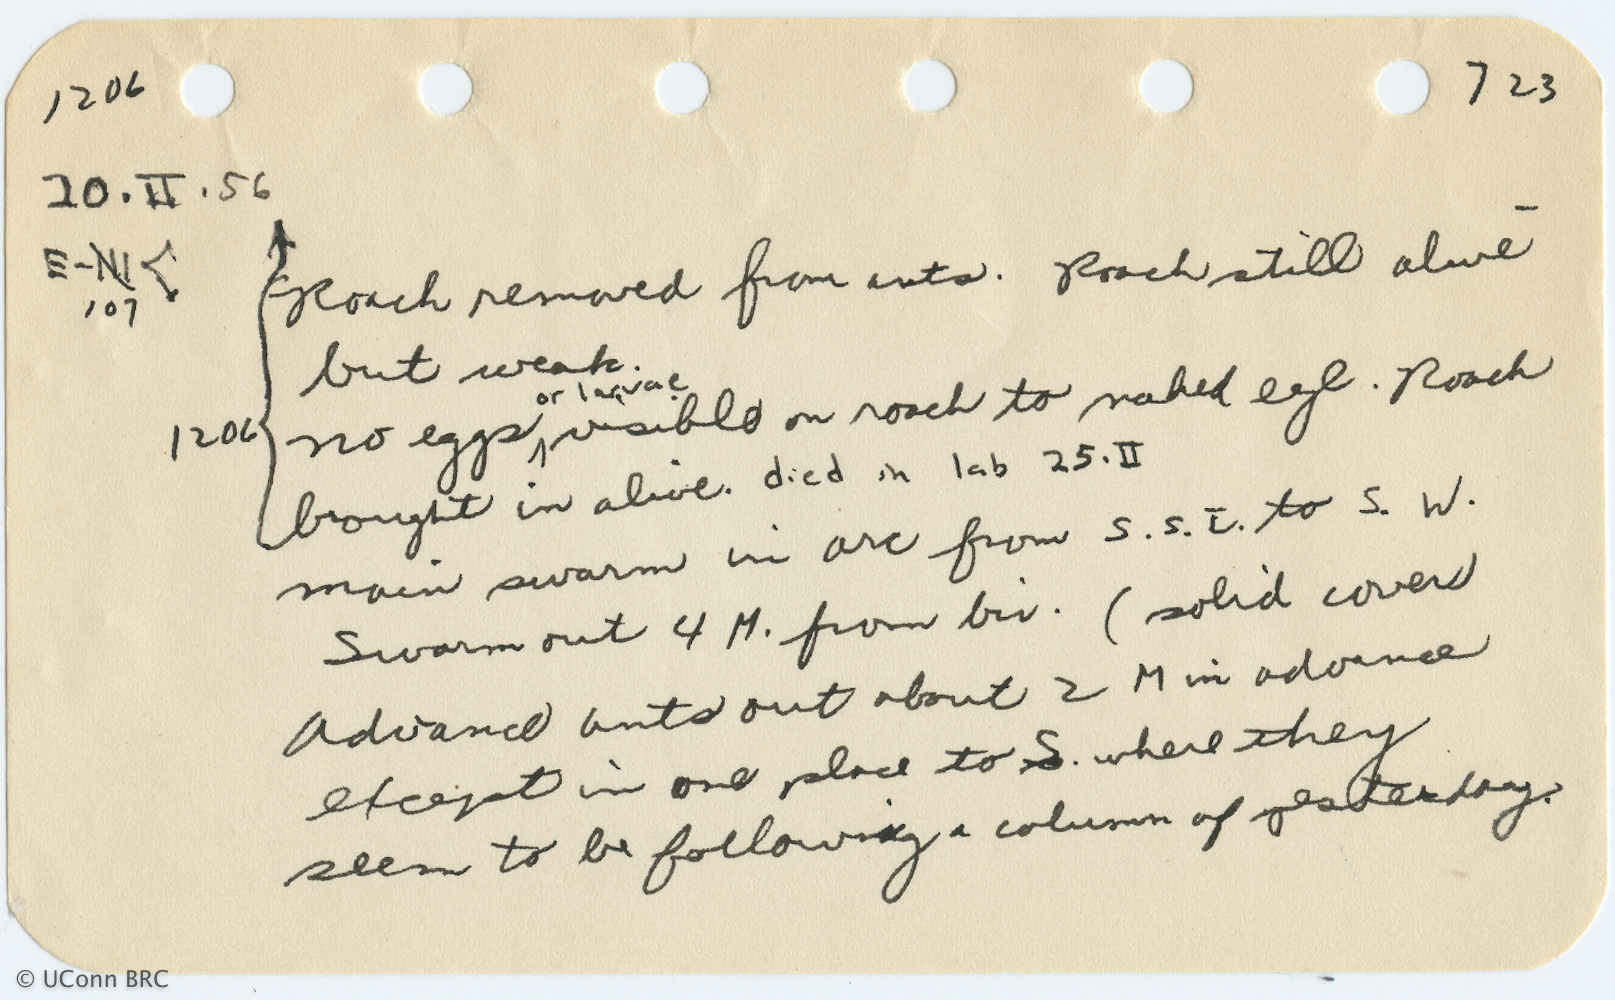 1206 723
20.II.56
E-NI
107
Roach removed from ants. Roach still alive
but weak.
or larvae
1206 no eggs visible on roach to naked eye. Roach
brought in alive. died in lab 25.II
main swarm in arc from S.S.E. to S.W.
Swarm out 4 M. from biv. (solid cover)
Advance ants out about 2 M in advance
except in one place to S. where they
seem to be following a column of yesterday.
© UConn BRC